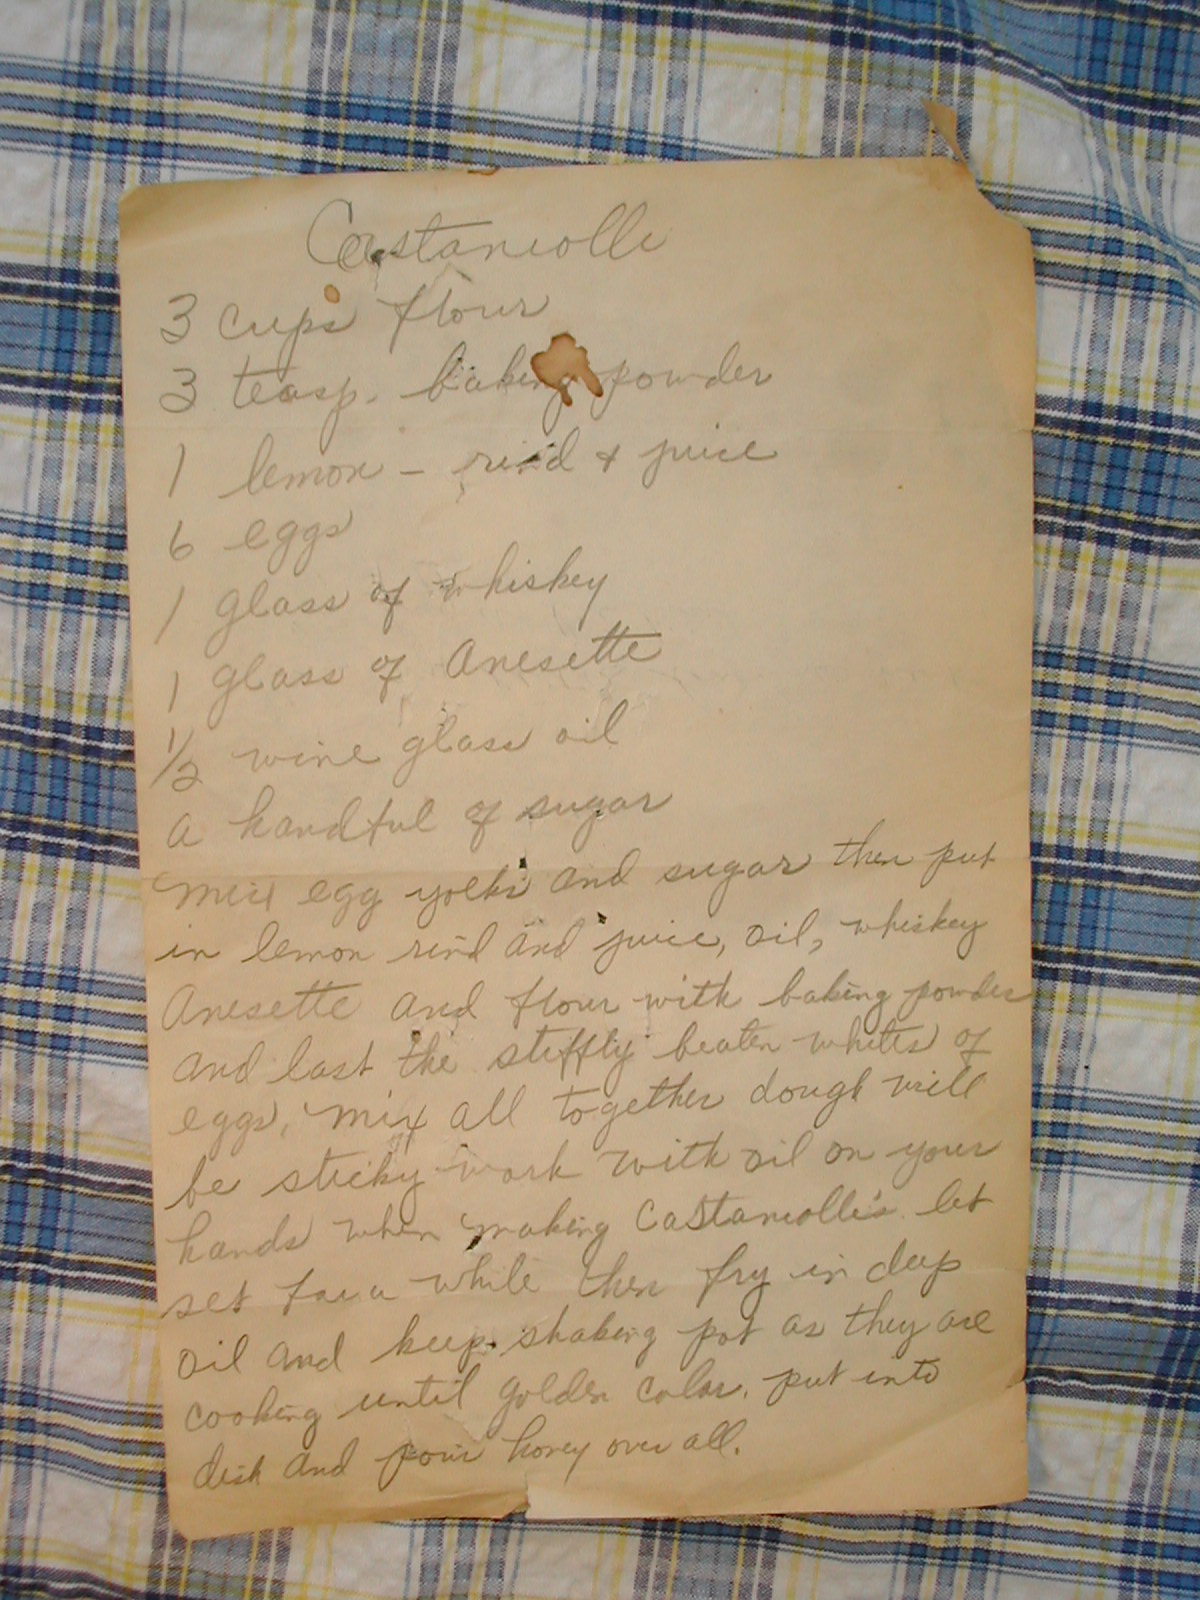 Castaniolli
3 cups flour
3 teasp. baking powder
1 lemon - rind + juice
6 eggs
1 glass of whiskey
1 glass of Anesette
1/2 wine glass oil
a handful of sugar
Mix egg yolks and sugar then put
in lemon rind and juice, oil, whiskey
Anesette and flour with baking powder
and last the stiffly beaten whites of
eggs, mix all together dough will
be sticky work with oil on your
hands when making Castaniolli's let
set for a while then fry in deep
oil and keep shaking pot as they are
cooking until golden color. put into
dish and pour honey over all.